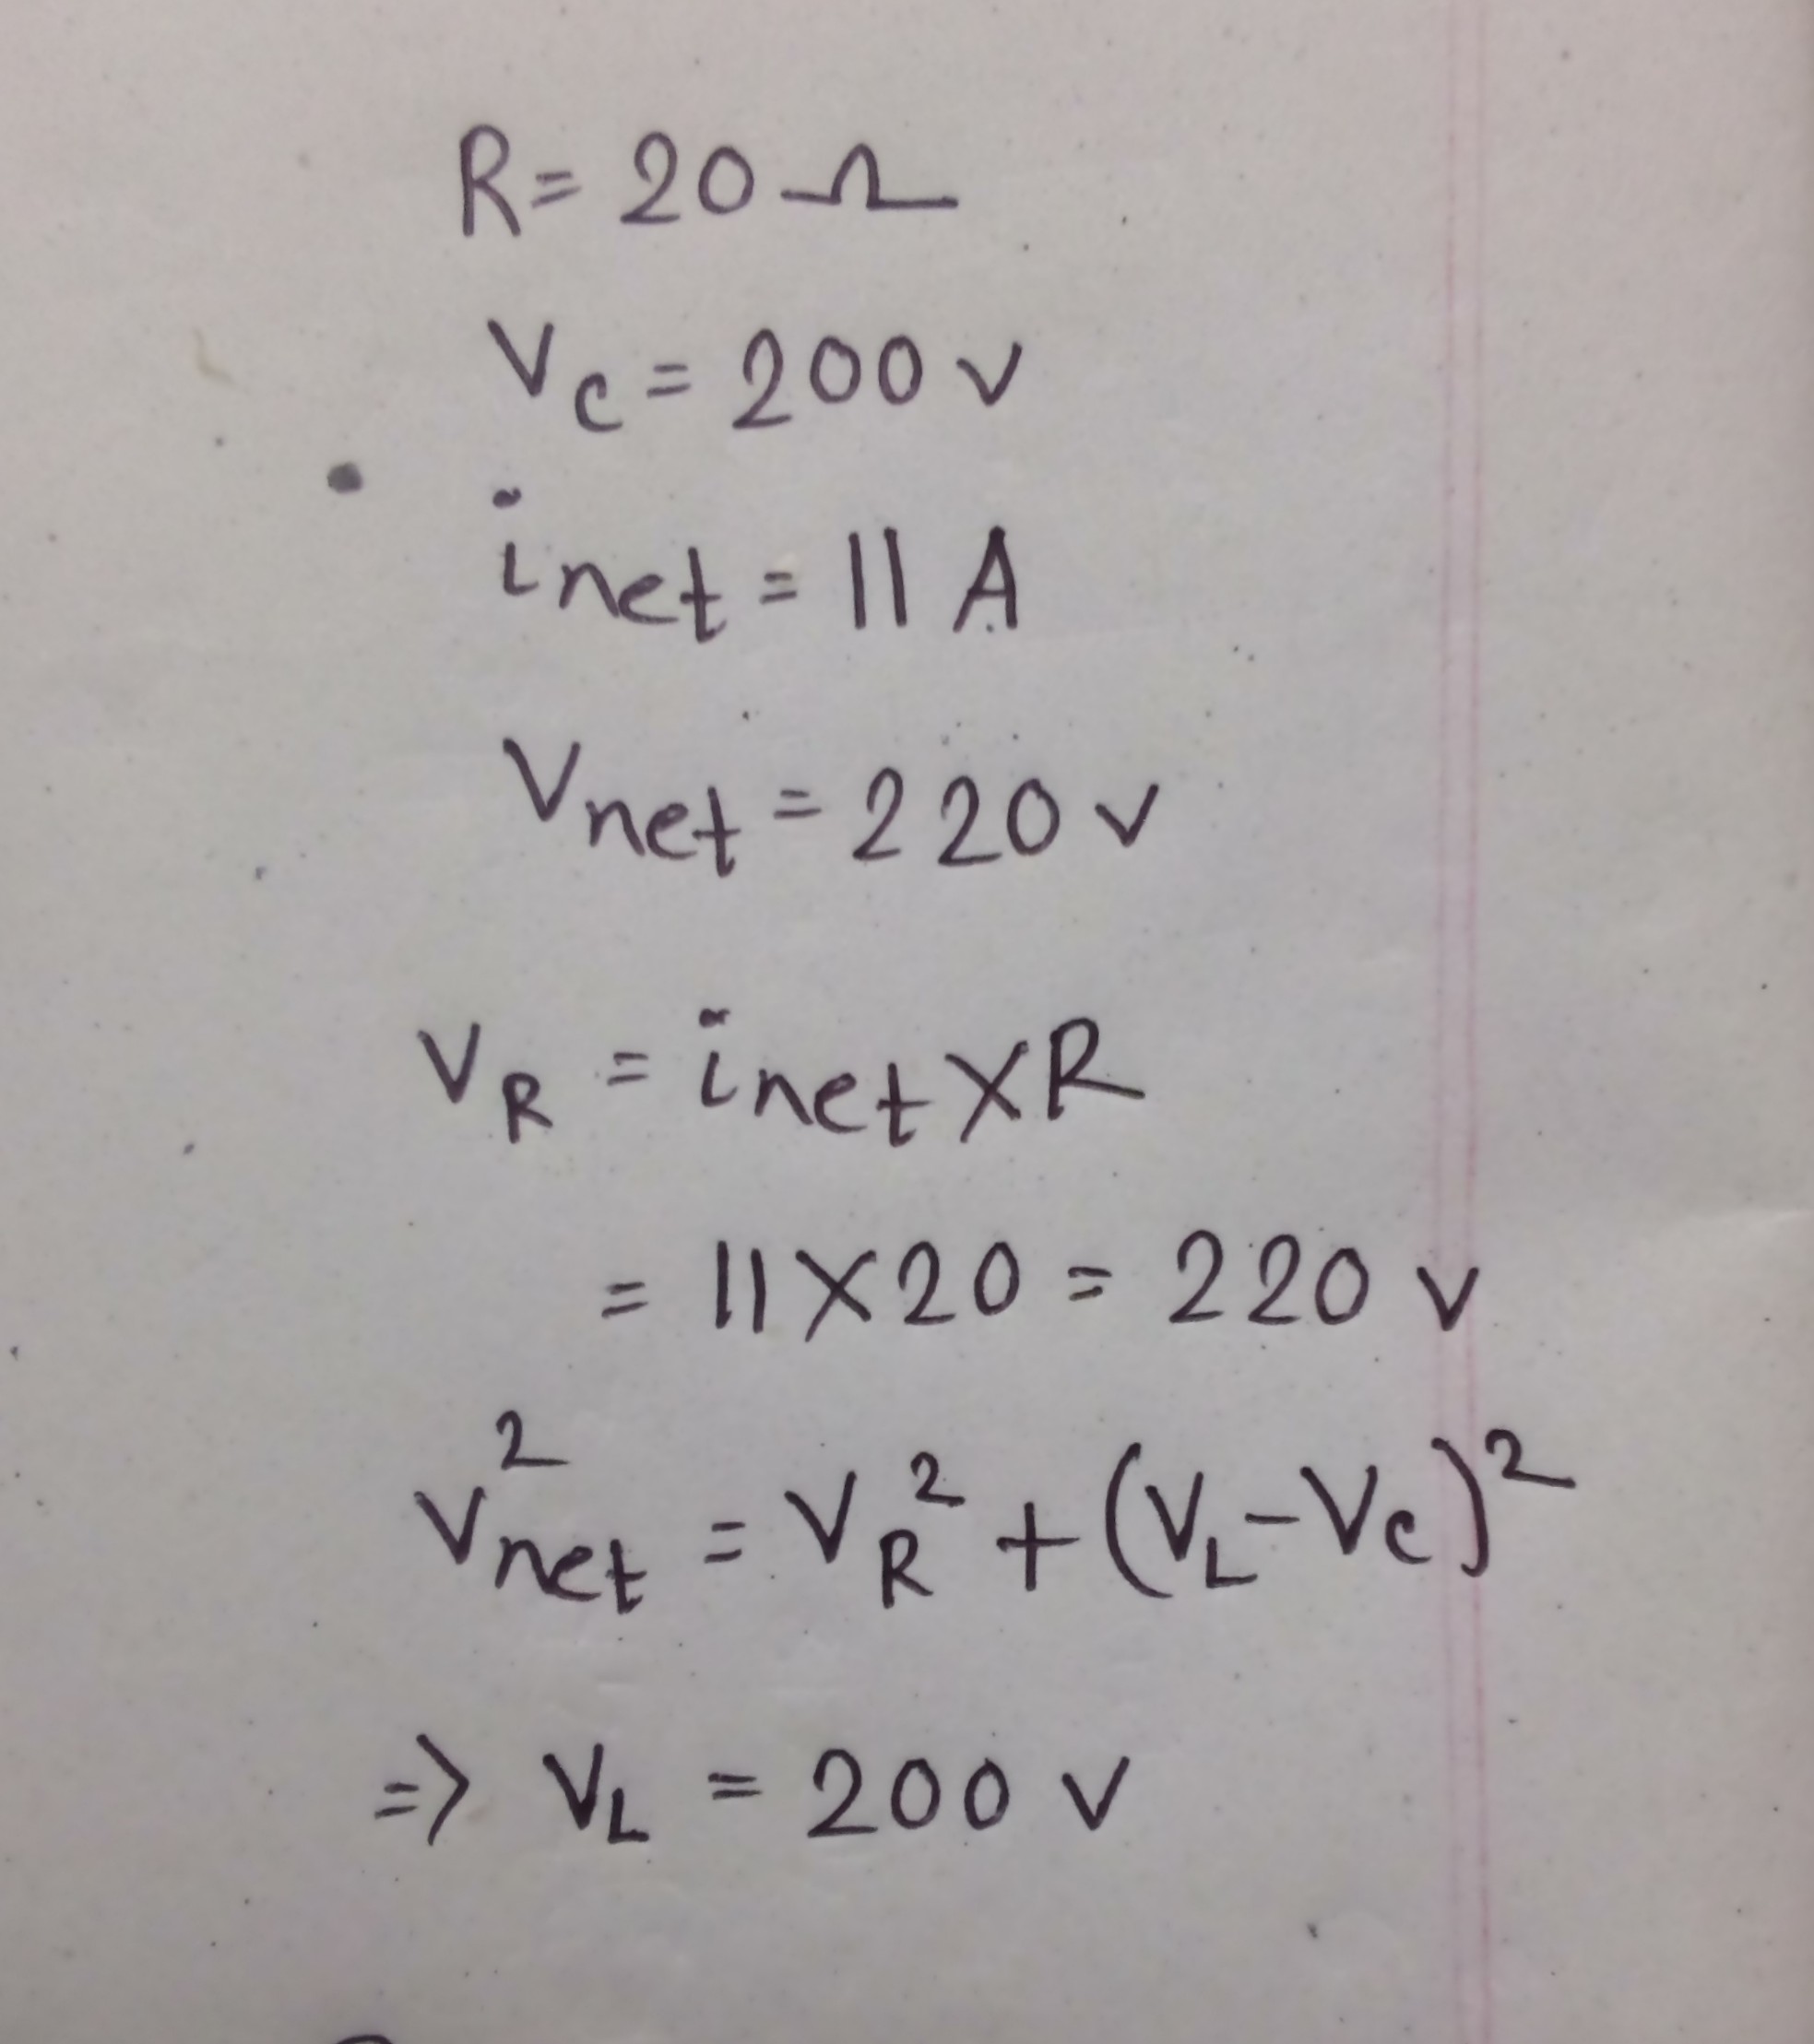 R = 20 Ω
Vc = 200 v
inet = 11 A
Vnet = 220 v
VR = inet × R
= 11 × 20 = 220 v
V²net = VR² + (VL - Vc)²
=> VL = 200 v